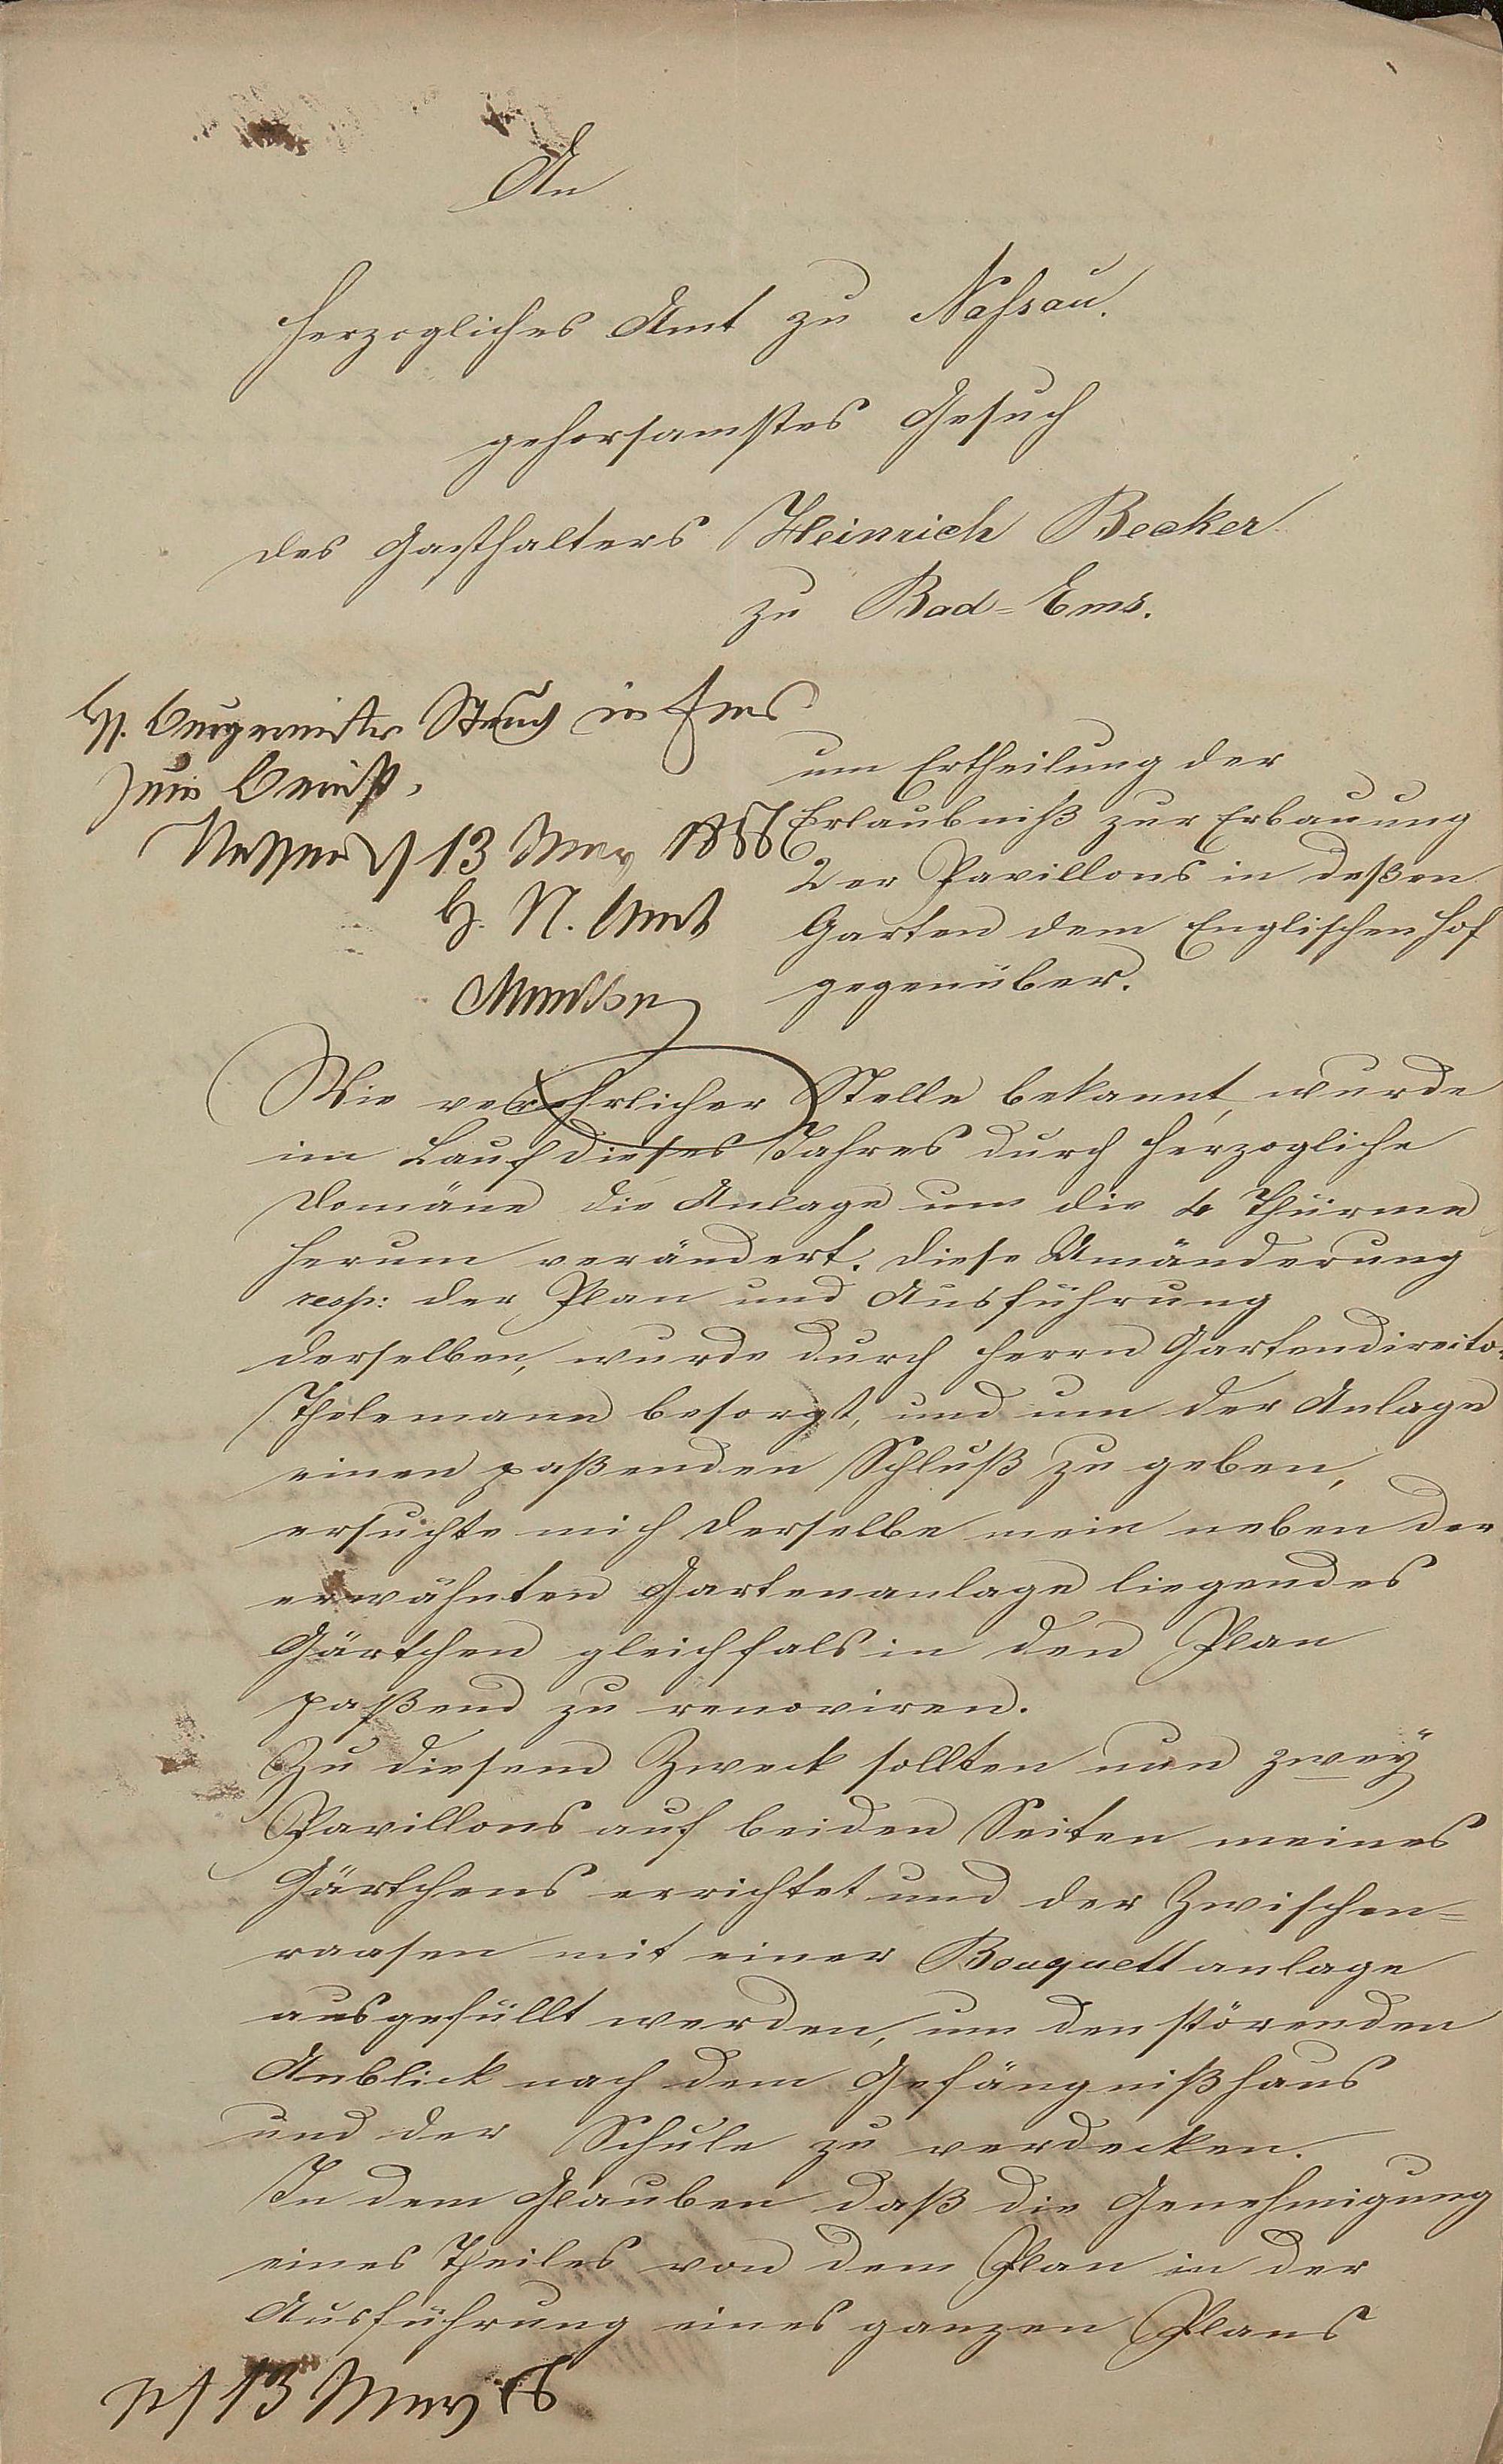 An
Herzogliches Amt zu Nassau.
gehorsamstes Gesuch
des Gasthalters Heinrich Becker
zu Bad-Ems.
H. Bürgermeister in Ems
zum Bericht.
Nassau d 13 May 1856
H. N. Amt
um Ertheilung der
Erlaubniß zur Erbauung
2er Pavillons in deßen
Garten dem Englischen Hof
gegenüber.
Wie verehrlicher Stelle bekannt, wurde
im Lauf dieses Jahres durch Herzogliche
Domäne die Anlage um die 4 Thürme
herum verändert. Diese Umänderung
resp: der Plan und Ausführung
derselben, wurde durch Herrn Gartendirector
Thelemann besorgt, und um der Anlage
einen paßenden Schluß zu geben,
ersuchte mich derselbe mein neben der
erwähnten Gartenanlage liegendes
Gärtchen gleichfals in den Plan
paßend zu renoviren.
Zu diesem Zweck sollten nun zwey
Pavillons auf beiden Seiten meines
Gärtchens errichtet und der Zwischen=
raasen mit einer Bouquettanlage
ausgefüllt werden, um den störenden
Anblick nach dem Gefängnißhaus
und der Schule zu verdecken.
In dem Glauben daß die Genehmigung
eines Theiles von dem Plan in der
Ausführung eines ganzen Plans
13 May